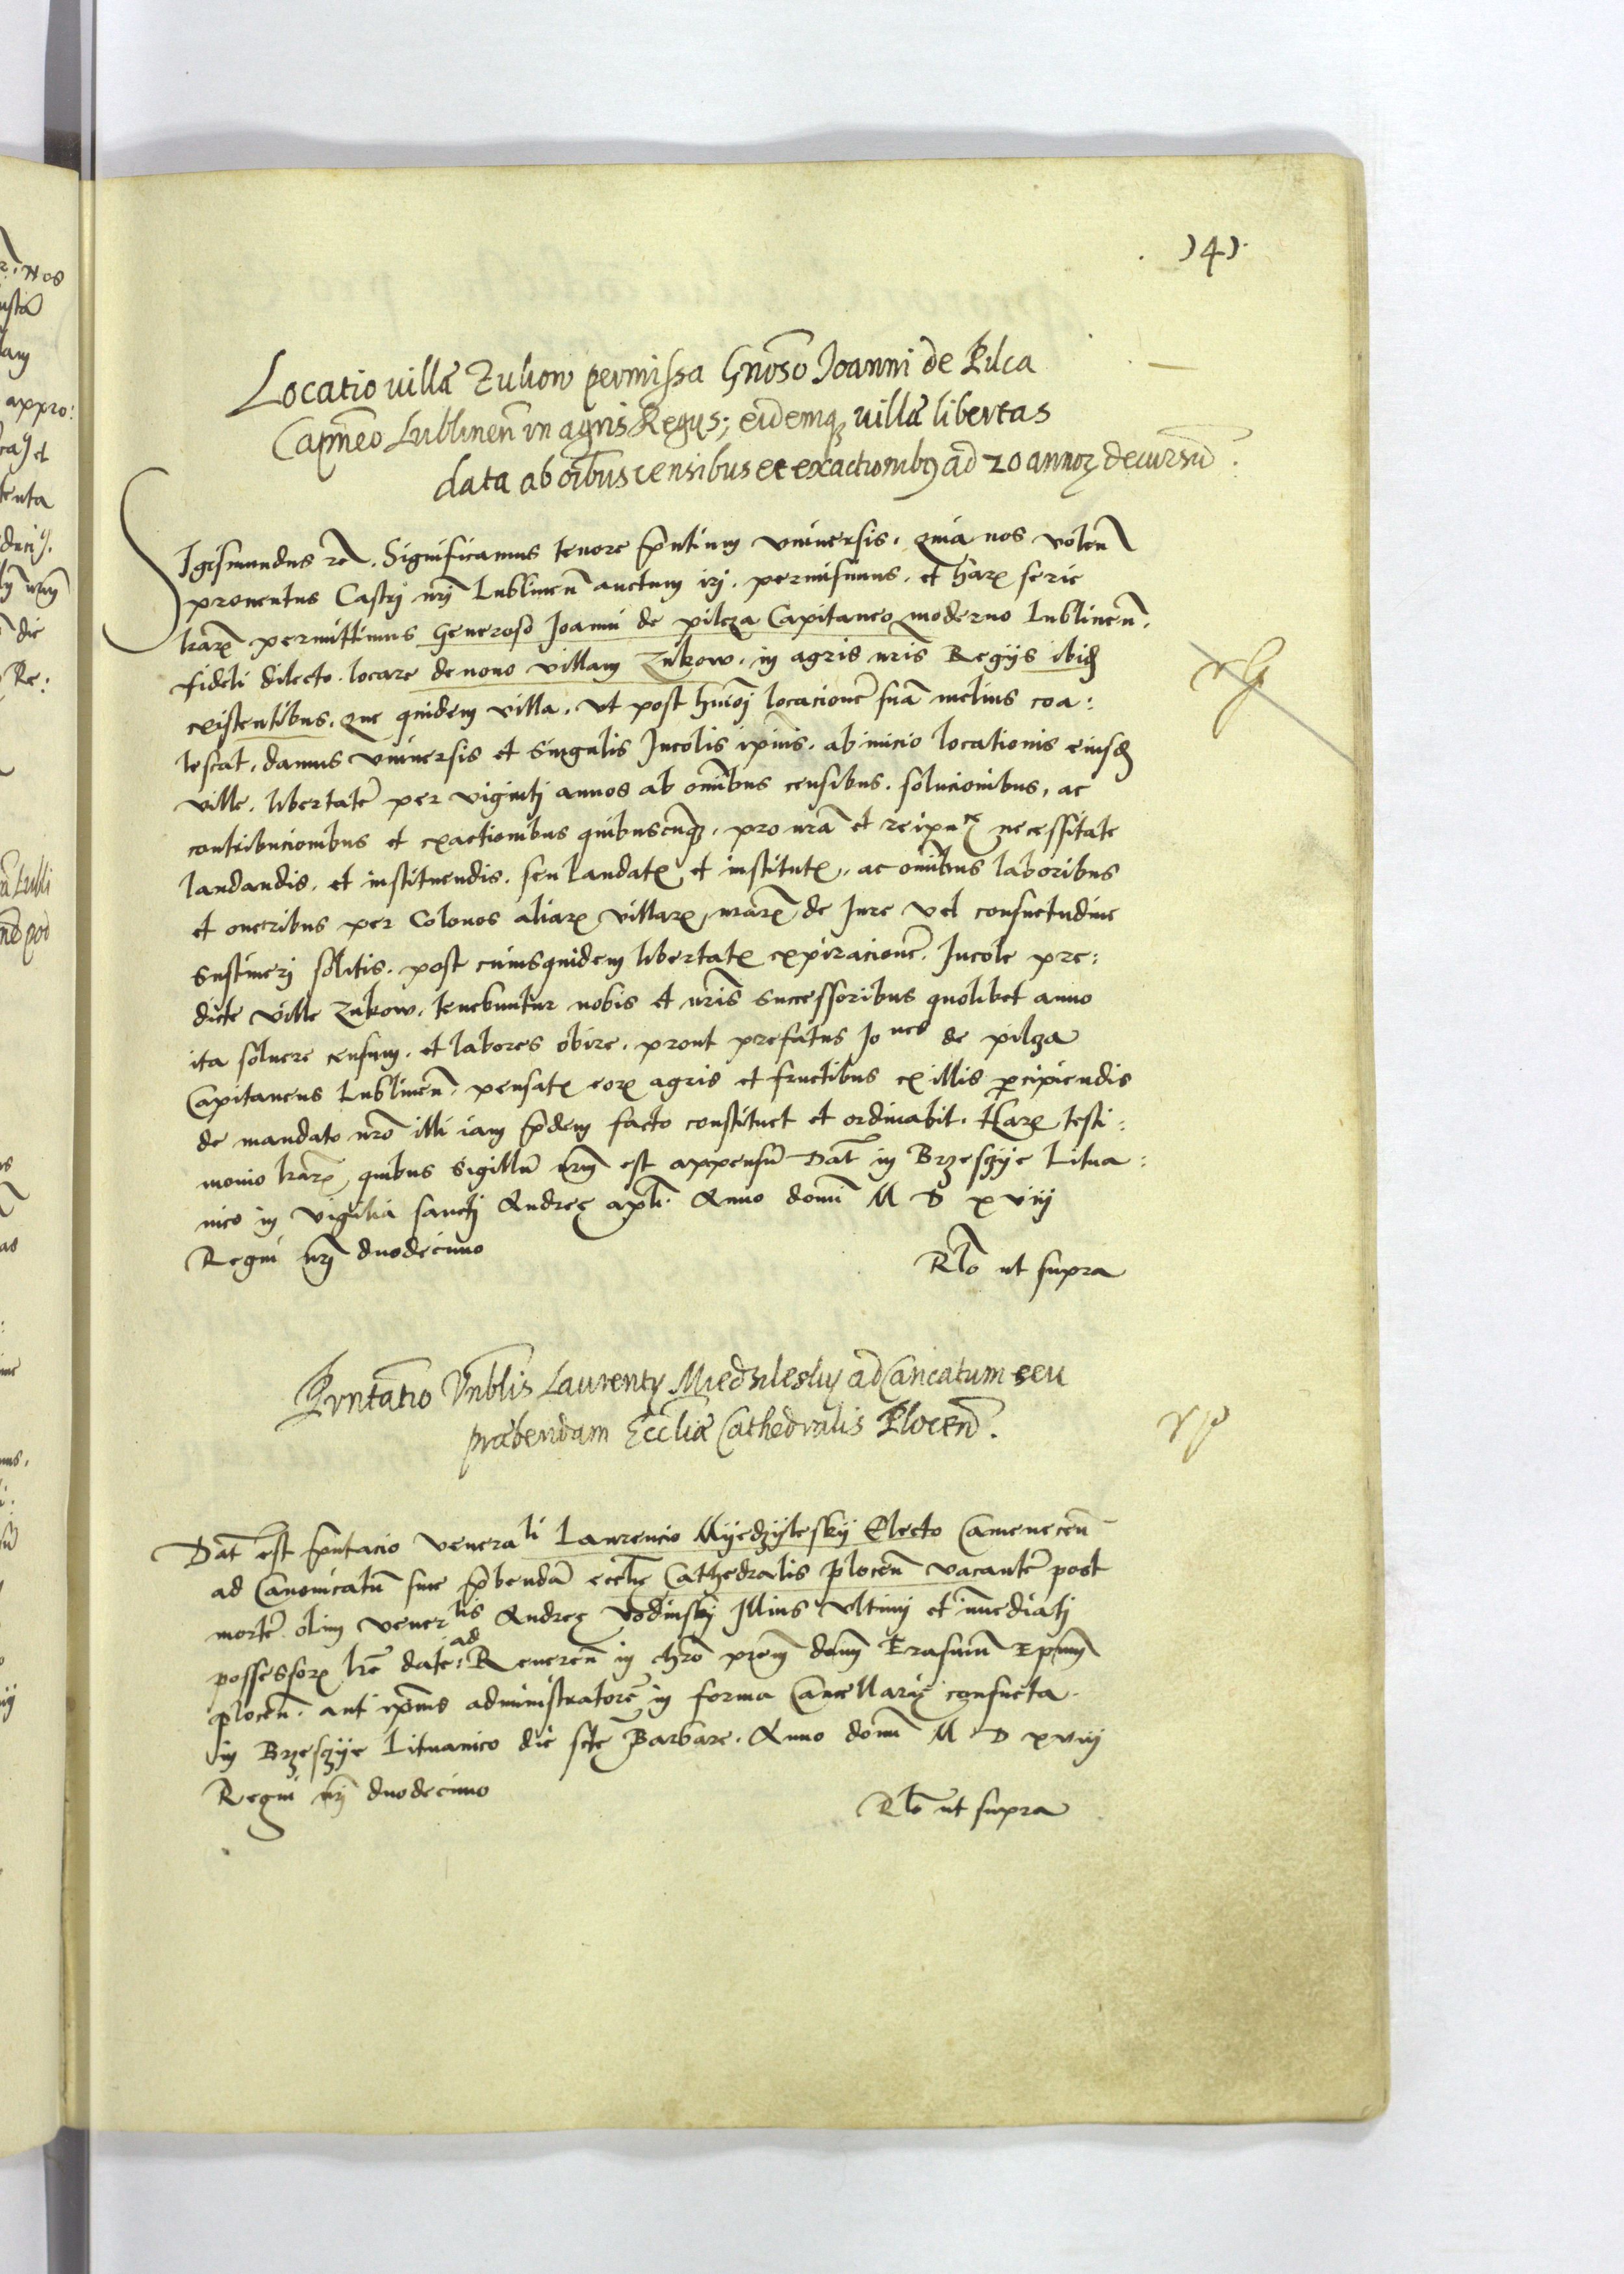 )4)
Locatio villæ Zukow permissa Gn̄oso Joanni de Pilca
Capn̄eo Lublinen̄ in agris Regijs; eidemq₃ villæ libertas
data ab oībus censibus et exactionibꝰ ad 20 annoꝝ decursū.
Sigismundus rē. Significamus tenore p̄ntium vniuersis. quia nos volen̄
prouentus Castrj nrj̄ Lublinen̄ auctum irj. permisimus. et harꝝ serie
lrarꝝ permittimus Generoso Joannj de pilcza Capitaneo moderno Lublinen̄.
fideli dilecto. locare de nouo villam Zukow. in agris nrīs Regijs ibid
existentibus. que quidem villa. vt post huiōj locacionē suā melius coa:
lescat. damus vniuersis et singulis Incolis ipiūs. ab inicio locationis eiusd
ville. libertatē per vigintj annos ab om̄ibus censibus. solucionibus, ac
contribucionibus et exactionibus quibuscūq₃. pro nrā et reipuce necessitate
laudandis. et instituendis. seu laudatꝭ et institutꝭ. ac om̄ibus laboribus
et oneribus per Colonos aliarꝝ villarꝝ nrārꝝ de Jure vel consuetudine
sustinerj solitis. post cuiusquidem libertatꝭ expiracionē. Incole pre:
dicte ville Zukow. tenebuntur nobis et nrīs successoribus quolibet anno
ita soluere censum. et labores obire. prout prefatus Jo nes de pilcza
Capitaneus Lublinen̄. pensatꝭ eorꝝ agris et fructibus ex illis ꝑcipiendis
de mandato nrō illi iam pridem facto constituet et ordinabit. Harꝝ testi:
monio lrarꝝ quibus sigillū nrm̄ est appensū Dat̄ in Brzesczye Litua:
nico in vigilia sanctj Andreę apl̄i. Anno domī M D xviij
Regni nrj̄ duodecimo
Rlō ut supra
Prn̄tatio Vnblīs Laurentij Miedzilesky ad Cancatum seu
præbendam Eccliæ Cathedralis Plocen̄.
Dat̄ est p̄ntacio venerali Laurencio Myedzyleskij Electo Camenecen̄
ad Canonicatū siue p̄bendā ecclīę Cathedralis plocen̄ vacantē post
mortē olim venerlis Andreę Vodinskj Illius vltimj et im̄ediatj
possessorꝭ lrē date ad Reueren̄ in chrō prem̄ dnm̄ Erasmū Ep̄um
plocen̄. aut ip̄ius administratorē in forma Cancellarię consueta.
in Brzesczye Lituanico die sctę Barbare. Anno domī M D xviij
Regni nrj̄ duodecimo
Rlō ut supra